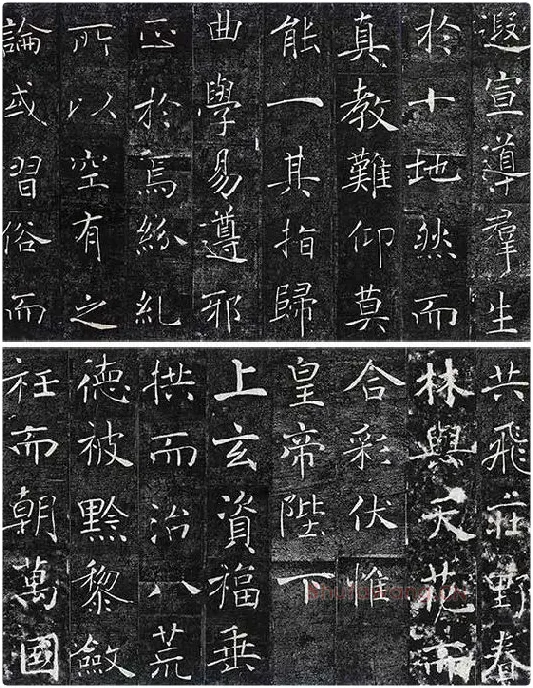 遐宣導羣生
於十地然而
真教難仰莫
能一其指歸
曲學易遵邪
正於焉紛糺
所以空有之
論或習俗而
共飛莊野春
林與天花而
合彩伏惟
皇帝陛下
上玄資福垂
拱而治八荒
德被黔黎斂
衽而朝萬國